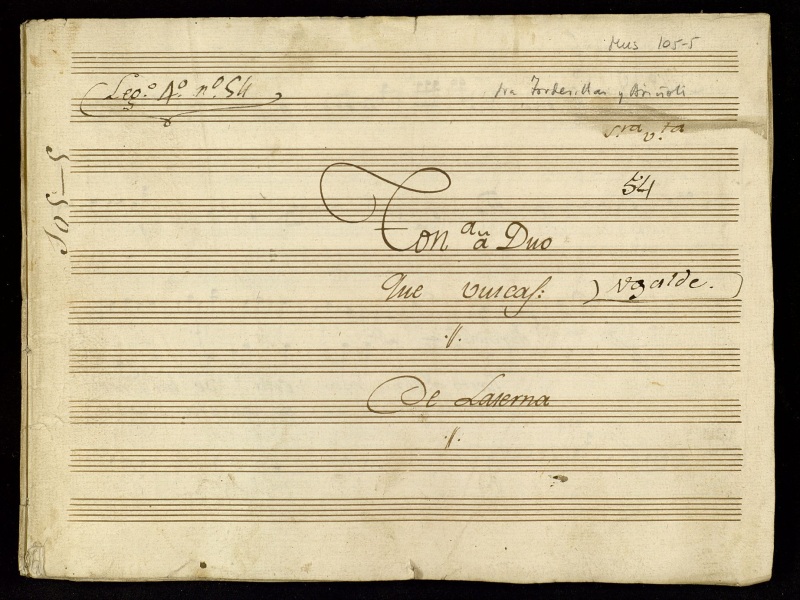 Mus 105-5
Leg.º A.º nº. 54
fra Tordesillas y Briñoli
S.ra V.ta
105-5
54
Ton.da à Duo
Que vuscas: Ugalde.
De Laserna